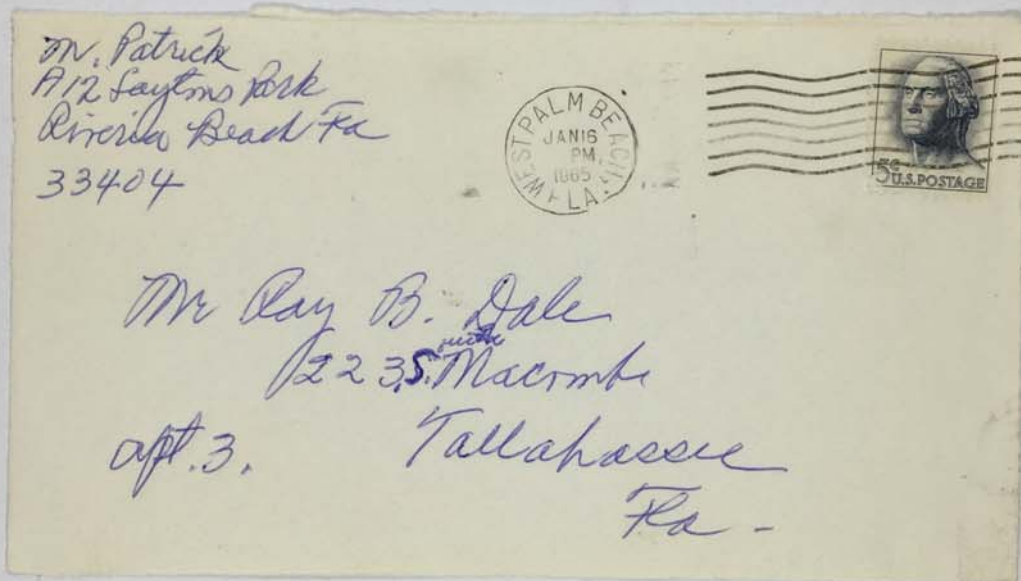 M. Patrick
A12 Laytons Park
Riveria Beach Fa
33404
WEST PALM BEACH
JAN 16
PM
1965
FLA.
5¢
U.S.POSTAGE
Mr Ray B. Dale
south
223 S. Macombe
apt. 3. Tallahassee
Fla -